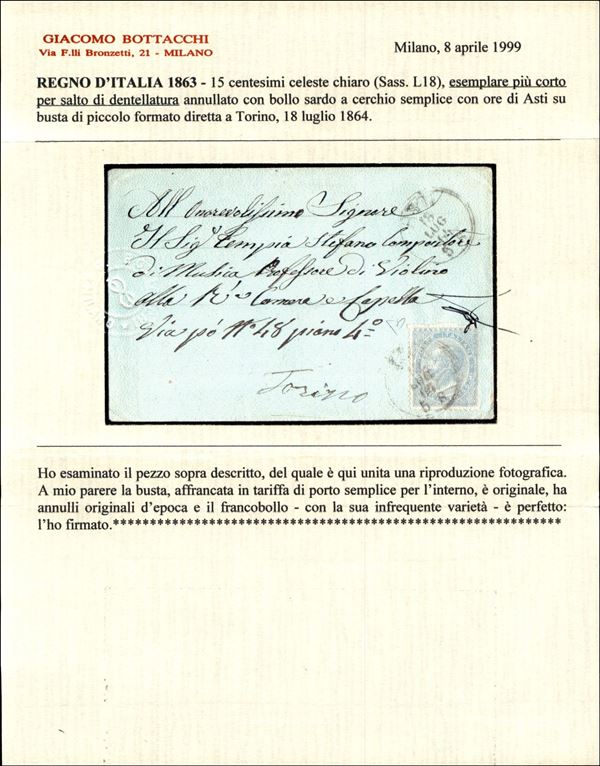 GIACOMO BOTTACCHI
Via F.lli Bronzetti, 21 - MILANO
Milano, 8 aprile 1999
REGNO D'ITALIA 1863 - 15 centesimi celeste chiaro (Sass. L18), esemplare più corto
per salto di dentellatura annullato con bollo sardo a cerchio semplice con ore di Asti su
busta di piccolo formato diretta a Torino, 18 luglio 1864.
All Onorevolissimo Signore
Il Sig.r Tempia Stefano Compositore
di Musica Professore di Violino
alla Camera e Cappella
Via pó N.o 48 piano 4.o
Torino
LUG
Ho esaminato il pezzo sopra descritto, del quale è qui unita una riproduzione fotografica.
A mio parere la busta, affrancata in tariffa di porto semplice per l'interno, è originale, ha
annulli originali d'epoca e il francobollo - con la sua infrequente varietà - è perfetto:
l'ho firmato.************************************************************